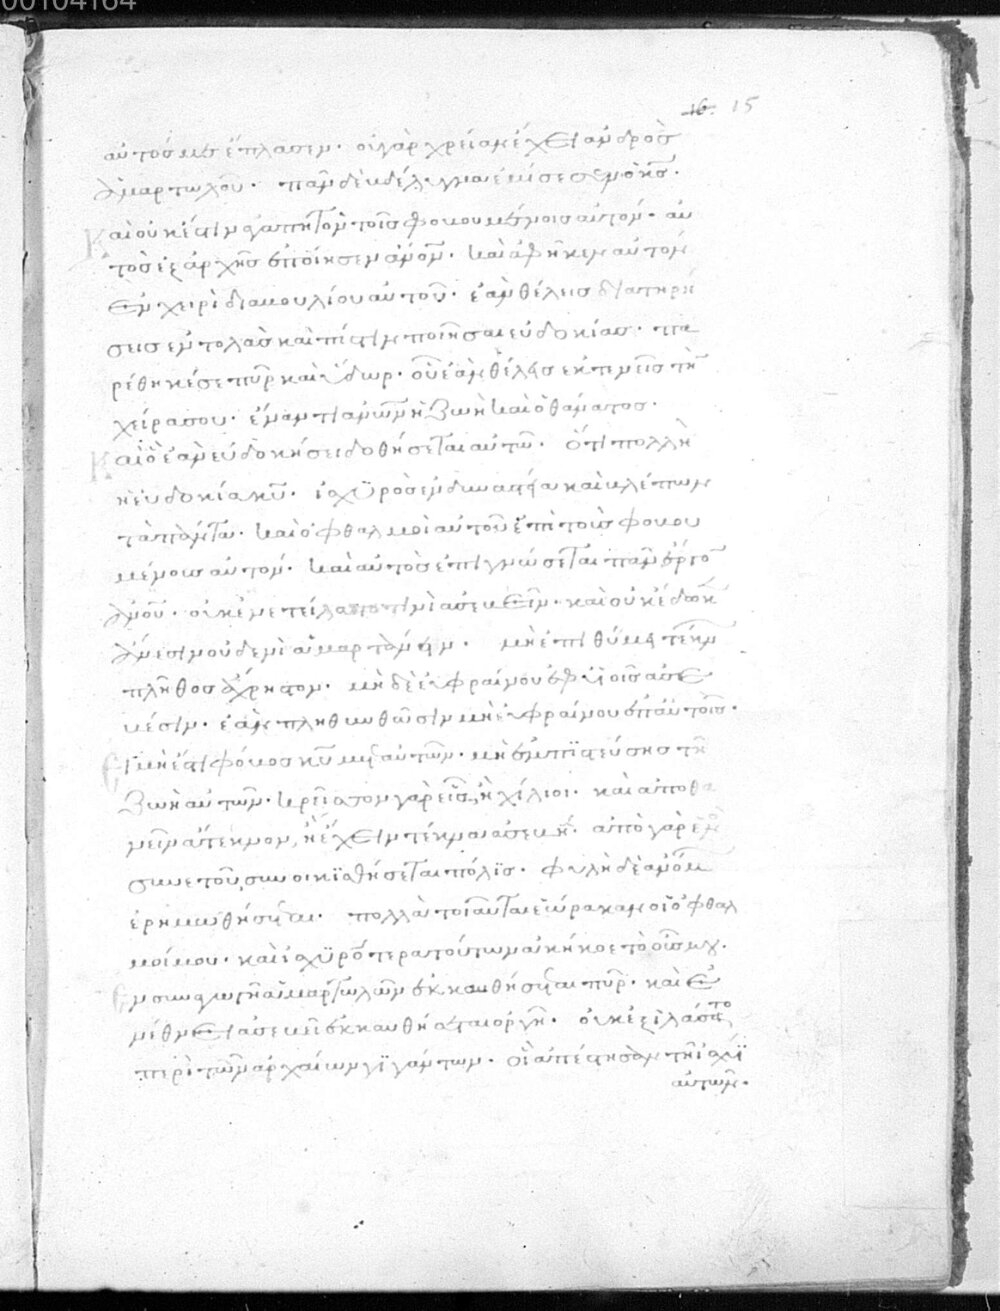 00104164
16. 15
αὐτός με ἐπλασεν· οὐ γὰρ χρείαν ἔχει ἀνδρὸς
ἁμαρτωλοῦ· πᾶν βδέλυγμα ἐμίσησεν ὁ κς·
Καὶ οὐκ ἔστιν ἀγαπητὸν τοῖς φοβουμένοις αὐτόν· αὐ
τὸς ἐξ ἀρχῆς ἐποίησεν ἄνον· καὶ ἀφῆκεν αὐτὸν
ἐν χειρὶ διαβουλίου αὐτοῦ· ἐὰν θέλεις διατηρή
σεις ἐντολὰς καὶ πίστιν ποιῆσαι εὐδοκίας· πα
ρέθηκέ σε πῦρ καὶ ὕδωρ· οὗ ἐὰν θέλῃς ἐκτεμεῖς τὴν
χεῖρα σου· ἔναντι ἀνων ἡ ζωὴ καὶ ὁ θάνατος·
Καὶ ὃ ἐὰν εὐδοκήσει δοθήσεται αὐτῶ· ὅτι πολλὴ
ἡ εὐδοκία κυ· ἰσχυρὸς ἐν δυναστεία καὶ βλέπων
τὰ πάντα· καὶ ὀφθαλμοὶ αὐτοῦ ἐπὶ τοὺς φοβου
μένοις αὐτόν· καὶ αὐτὸς ἐπιγνώσεται πᾶν ἔργον
ἀνου· οὐκ ἐνετείλατο τινὶ ἀσεβεῖν· καὶ οὐκ ἔδωκεν
ἄνεσιν οὐδενὶ ἁμαρτάνειν· μὴ ἐπιθύμει τέκνων
πλῆθος ἄχρηστον· μὴ δὲ εὐφραίνου ἐφ υἱοῖς ἀσε
βέσιν· ἐὰν πληθυνθῶσιν μὴ εὐφραίνου ἐπ αὐτοῖς·
Εἰ μὴ ἔστι φόβος κυ μετ αὐτῶν· μὴ ἐμπιστεύσης τῆ
ζωῆ αὐτῶν· κρεῖσσον γὰρ εἷς, ἢ χίλιοι· καὶ ἀποθα
νεῖν ἄτεκνον, ἢ ἔχειν τέκνα ἀσεβῆ· ἀπὸ γὰρ ἑνὸς
συνετοῦ, συνοικισθήσεται πόλις· φυλὴ δὲ ἀνόμων
ἐρημωθήσεται· πολλὰ τοιαῦτα ἑώρακαν οἱ ὀφθαλ
μοί μου· καὶ ἰσχυρότερα τούτων ἀκήκοε τὸ οὖς μου·
Ἐν συναγωγῆ ἁμαρτωλῶν ἐκκαυθήσεται πῦρ· καὶ ἐν
ἔθνει ἀσεβεῖ ἐκκαυθήσεται ὀργή· οὐκ ἐξιλάσατο
περὶ τῶν ἀρχαίων γιγάντων· οἳ ἀπέστησαν τῆ ἰσχύϊ
αὐτῶν·